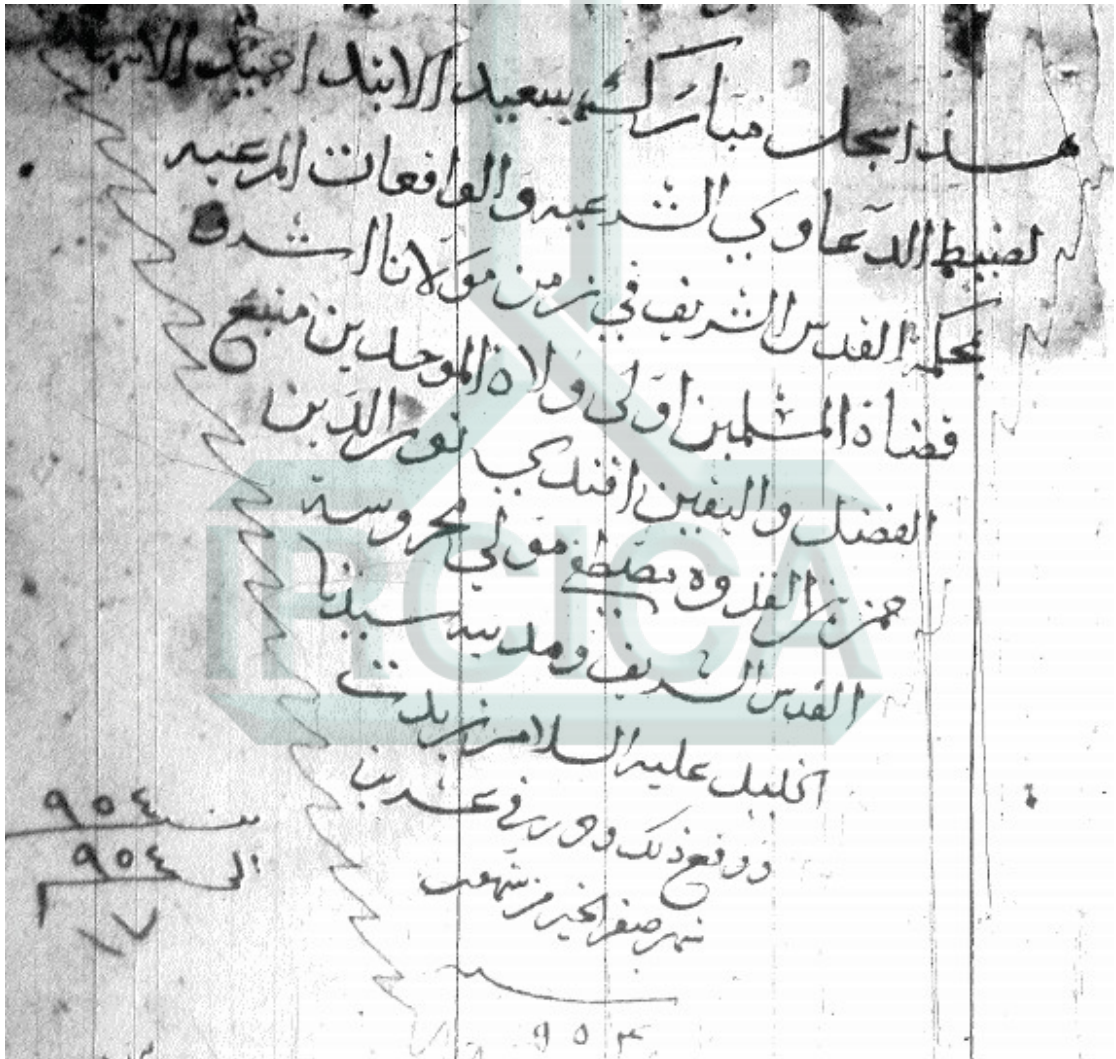 هذا سجل مبارك سعيد الابتدا حميد الانتها
لضبط الدعاوي الشرعيه والواقعات المرعيه
بمحكمة القدس الشريف في زمن مولانا اشرف
قضاة المسلمين اولى ولاة الموحدين منبع
الفضل واليقين افندي نور الدين
حمزه القدوه مصطفى مولي محروسة
القدس الشريف ومدينة سيدنا
الخليل عليه السلام زيدت
ووقع ذلك وحرر في عشرين
شهر صفر الخير من شهور
سنة
٩٥٤
سنة ٩٥٤
الى ٩٥٤
١٧
IRCICA